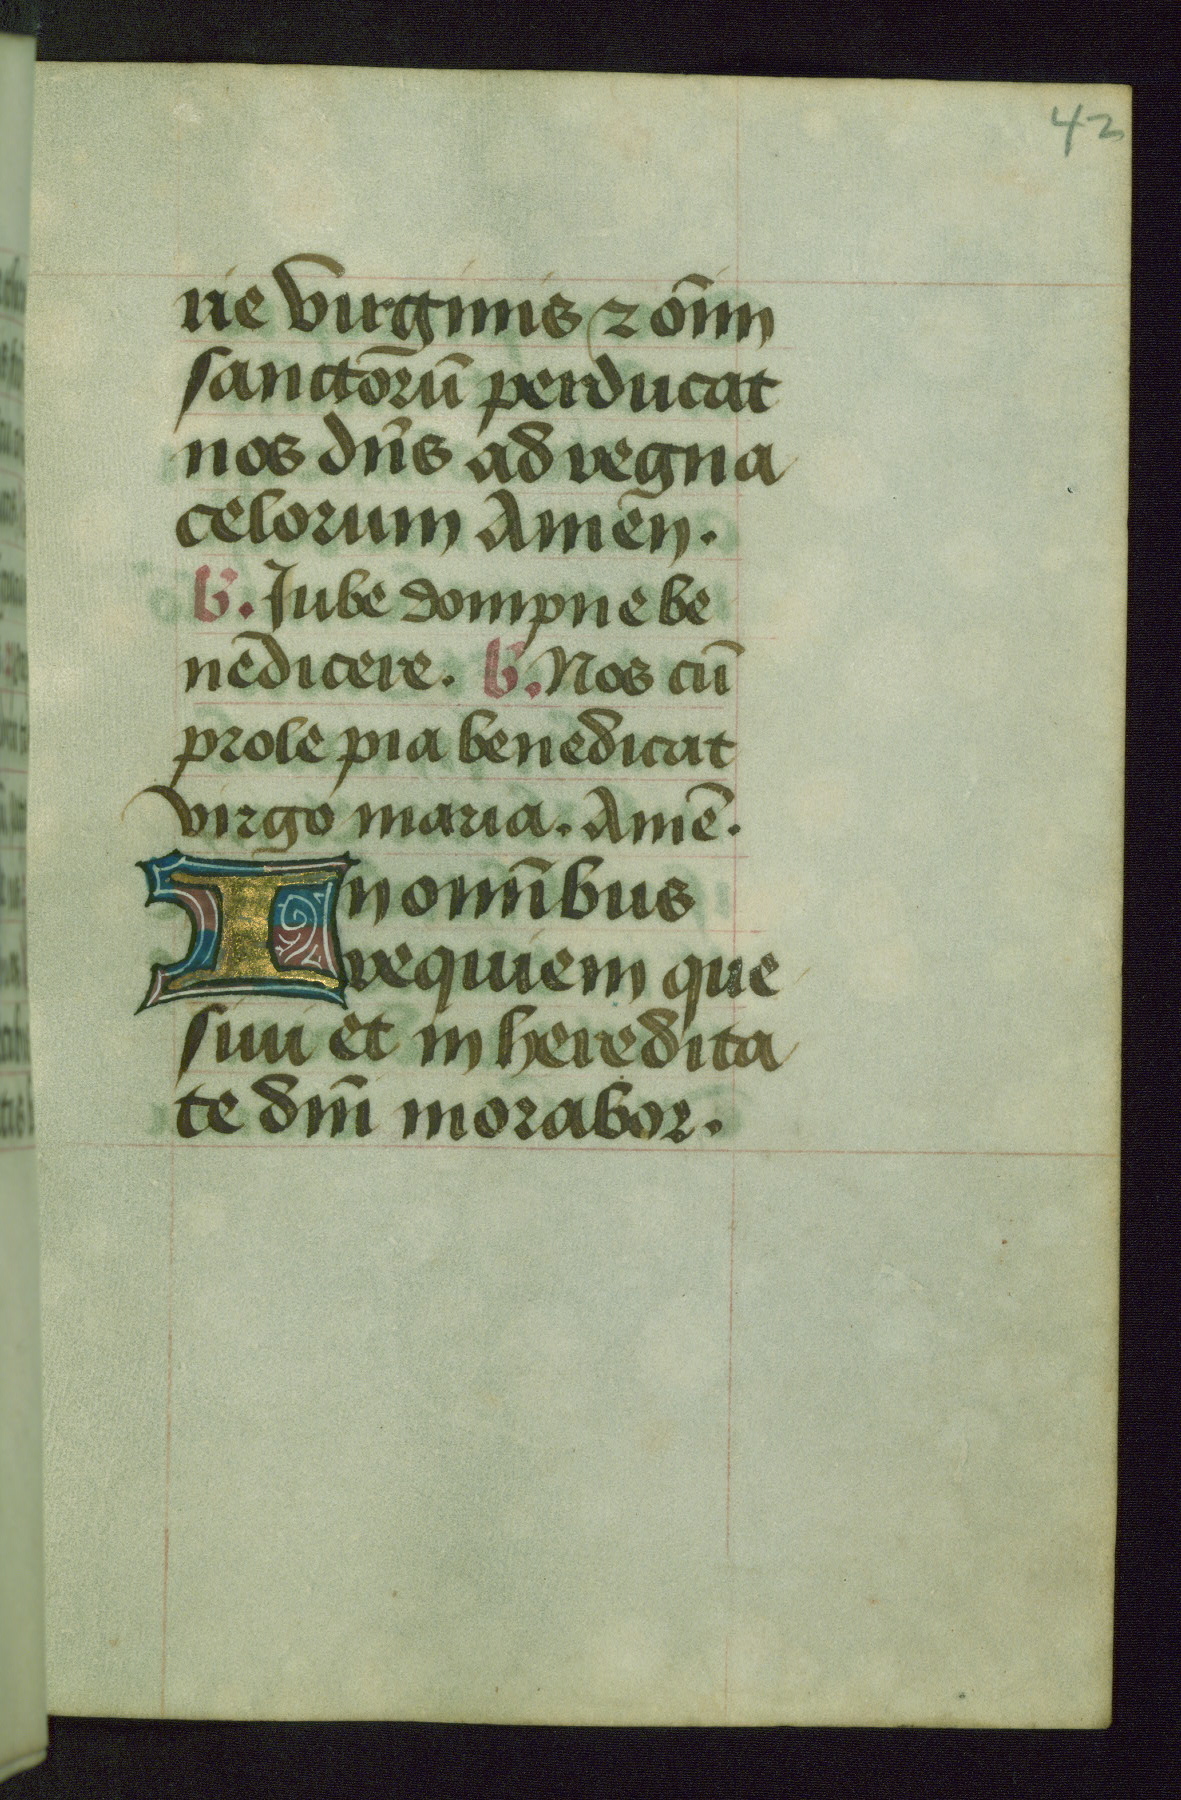 42
rie virginis ⁊ oīm
sanctōrū perducat
nos dn̄s ad regna
celorum Amen̄.
V̄. Jube dompne be
nēdicere. V̄. Nos cū
prole pia benedicat
virgo maria. Amē.
In omībus
requiem que
siui et in heredita
te dm̄i morabor.